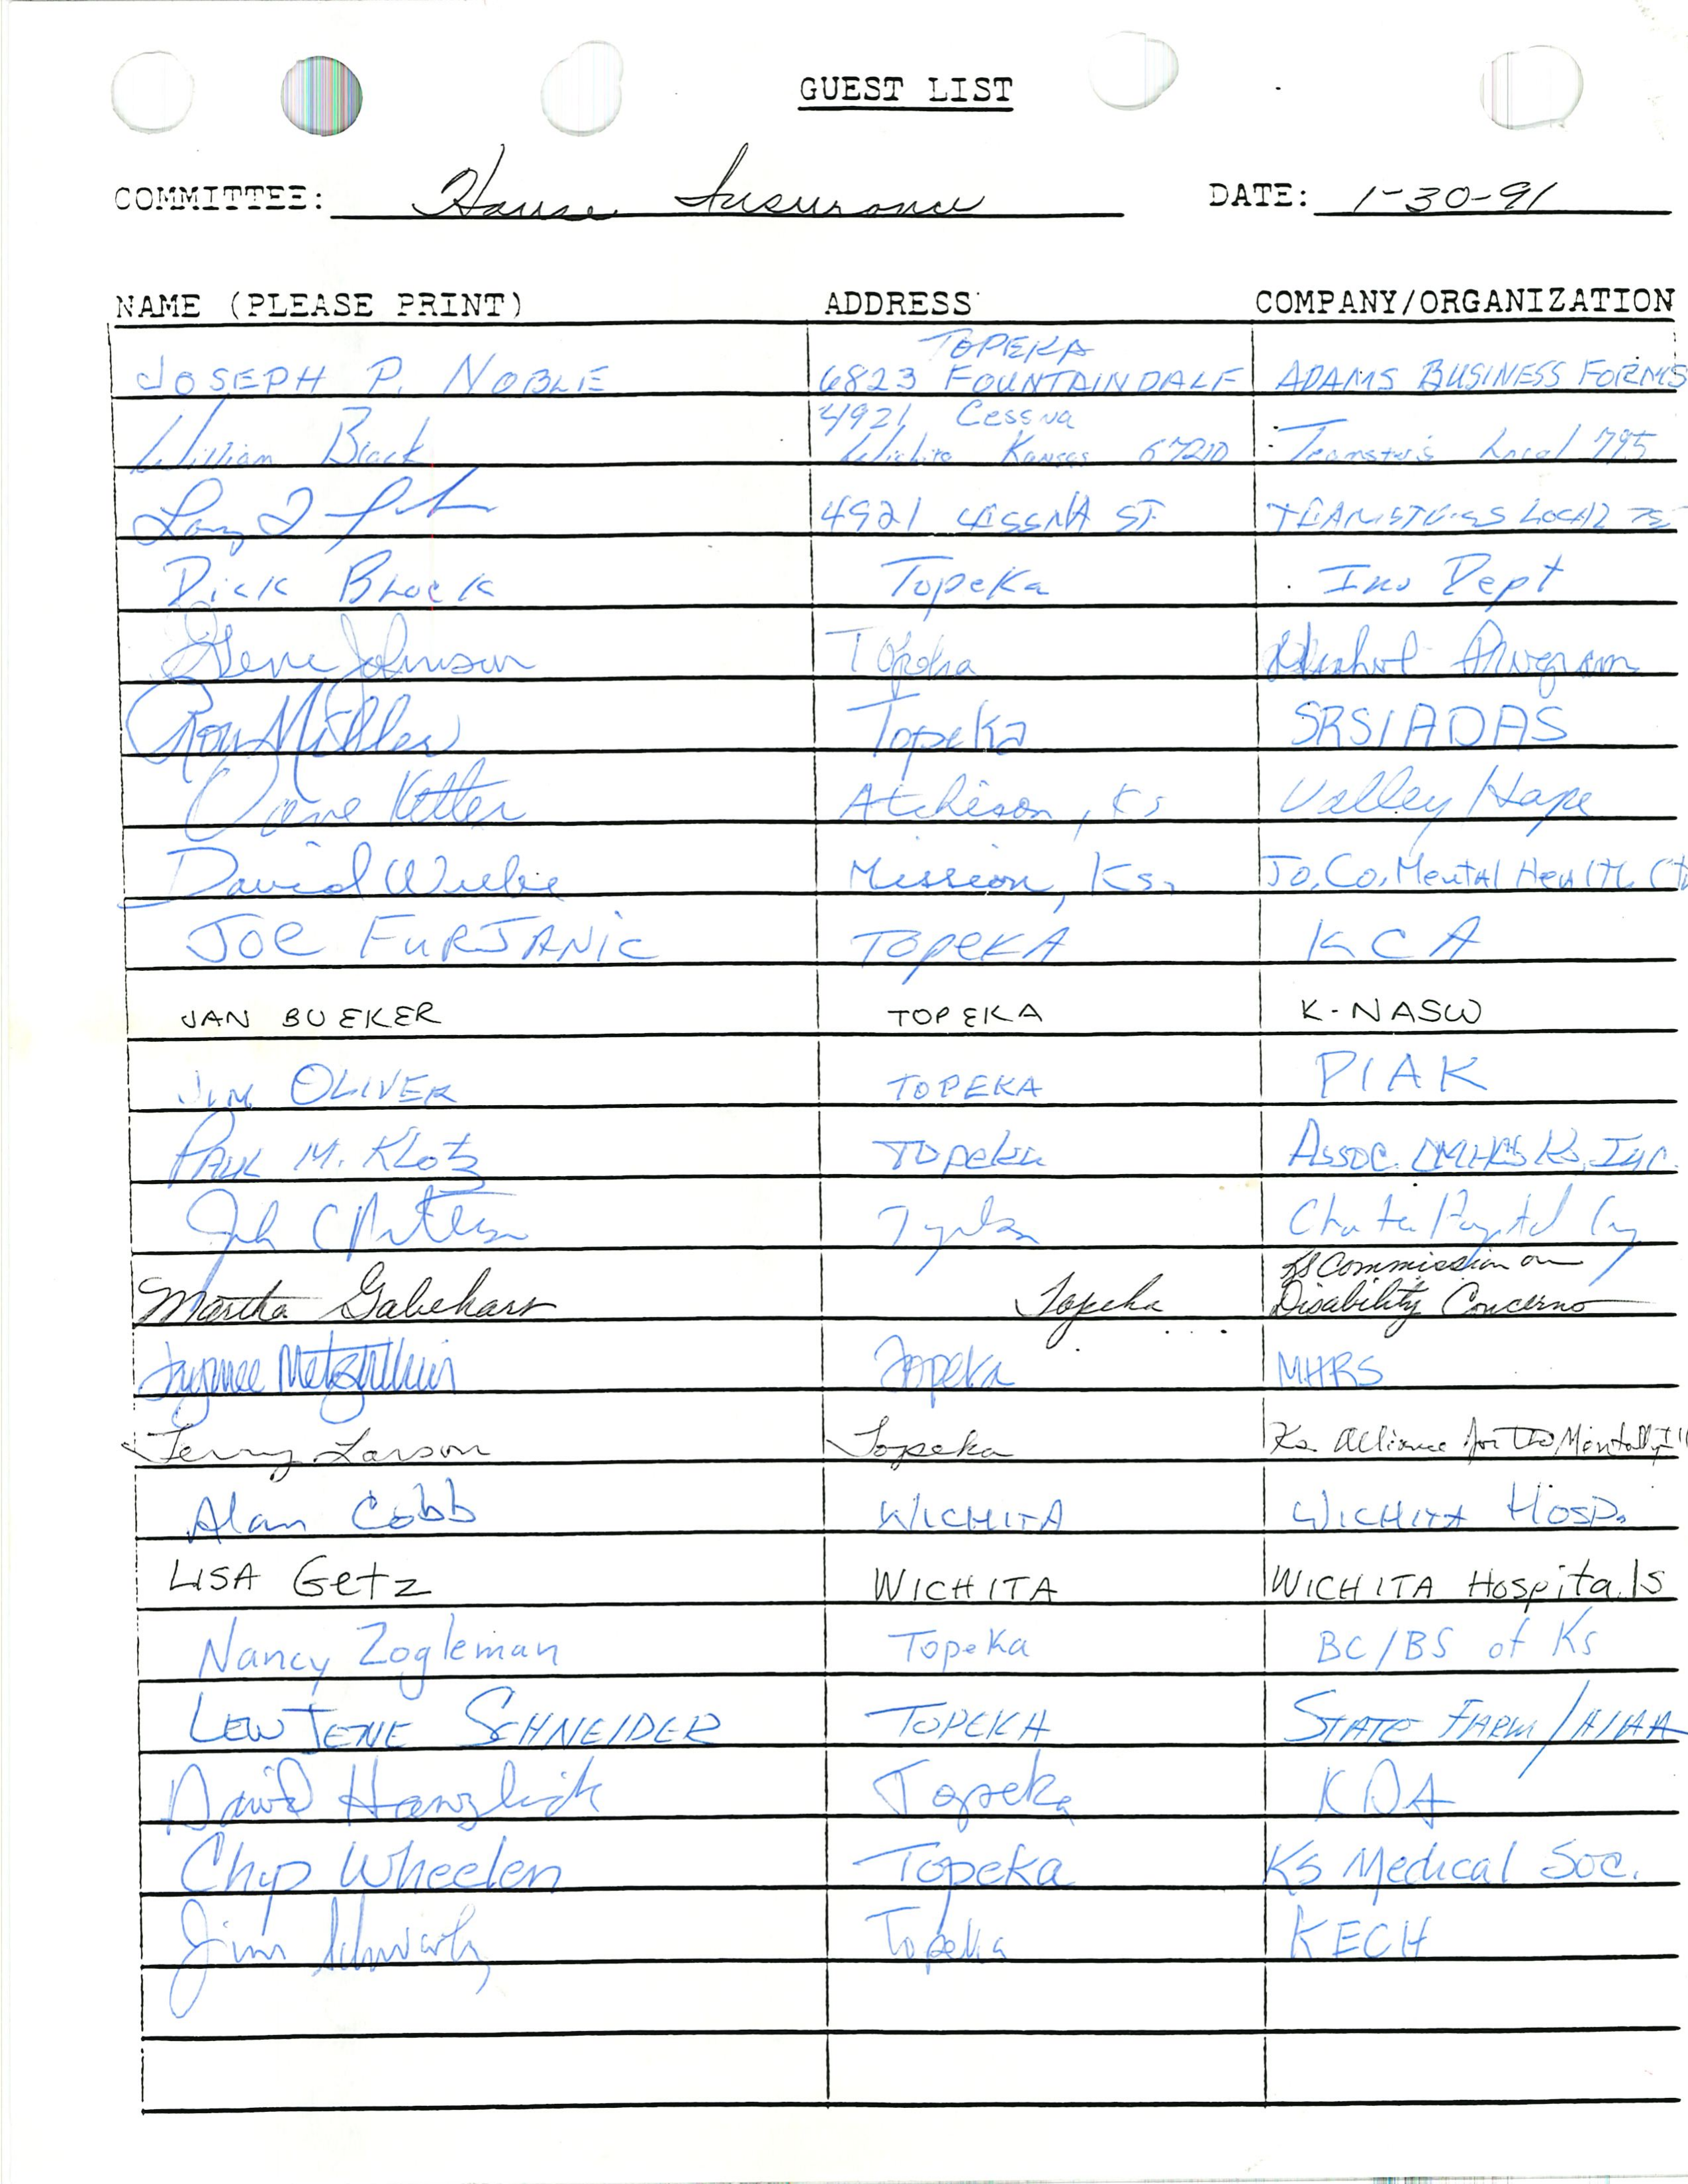 GUEST LIST
COMMITTEE: House Insurance DATE: 1-30-91
NAME (PLEASE PRINT) ADDRESS COMPANY/ORGANIZATION
TOPEKA
JOSEPH P. NOBLE 6823 FOUNTAINDALE ADAMS BUSINESS FORMS
4921 Cessna
William Black Wichita Kansas 67210 Teamster's Local 795
4921 CESSNA ST. TEAMSTERS LOCAL
Dick Brock Topeka Ins Dept
Gene Johnson Topeka Alcohol Program
Ron Miller Topeka SRS/ADAS
Ketter Atchison, Ks Valley Hope
David Wiebe Mission, Ks. Jo. Co. Mental Health Ct
JOE FURJANIC TOPEKA KCA
JAN BUEKER TOPEKA K-NASW
JIM OLIVER TOPEKA PIAK
PAUL M. KLOTZ TOPEKA ASSOC. CMHCS Ks, Inc.
John C Peterson Topeka Charter Hospital
KS Commission on
Martha Gabehart Topeka Disability Concerns
Topeka MHRS
Terry Larson Topeka Ks. Alliance for the Mentally Ill
Alan Cobb WICHITA WICHITA HOSP.
LISA GETZ WICHITA WICHITA Hospitals
Nancy Zogleman Topeka BC/BS of Ks
LEW JENE SCHNEIDER TOPEKA STATE FARM/HIAA
David Hanzlick Topeka KDA
Chip Wheelen Topeka KS Medical Soc.
Jim Schwartz Topeka KECH